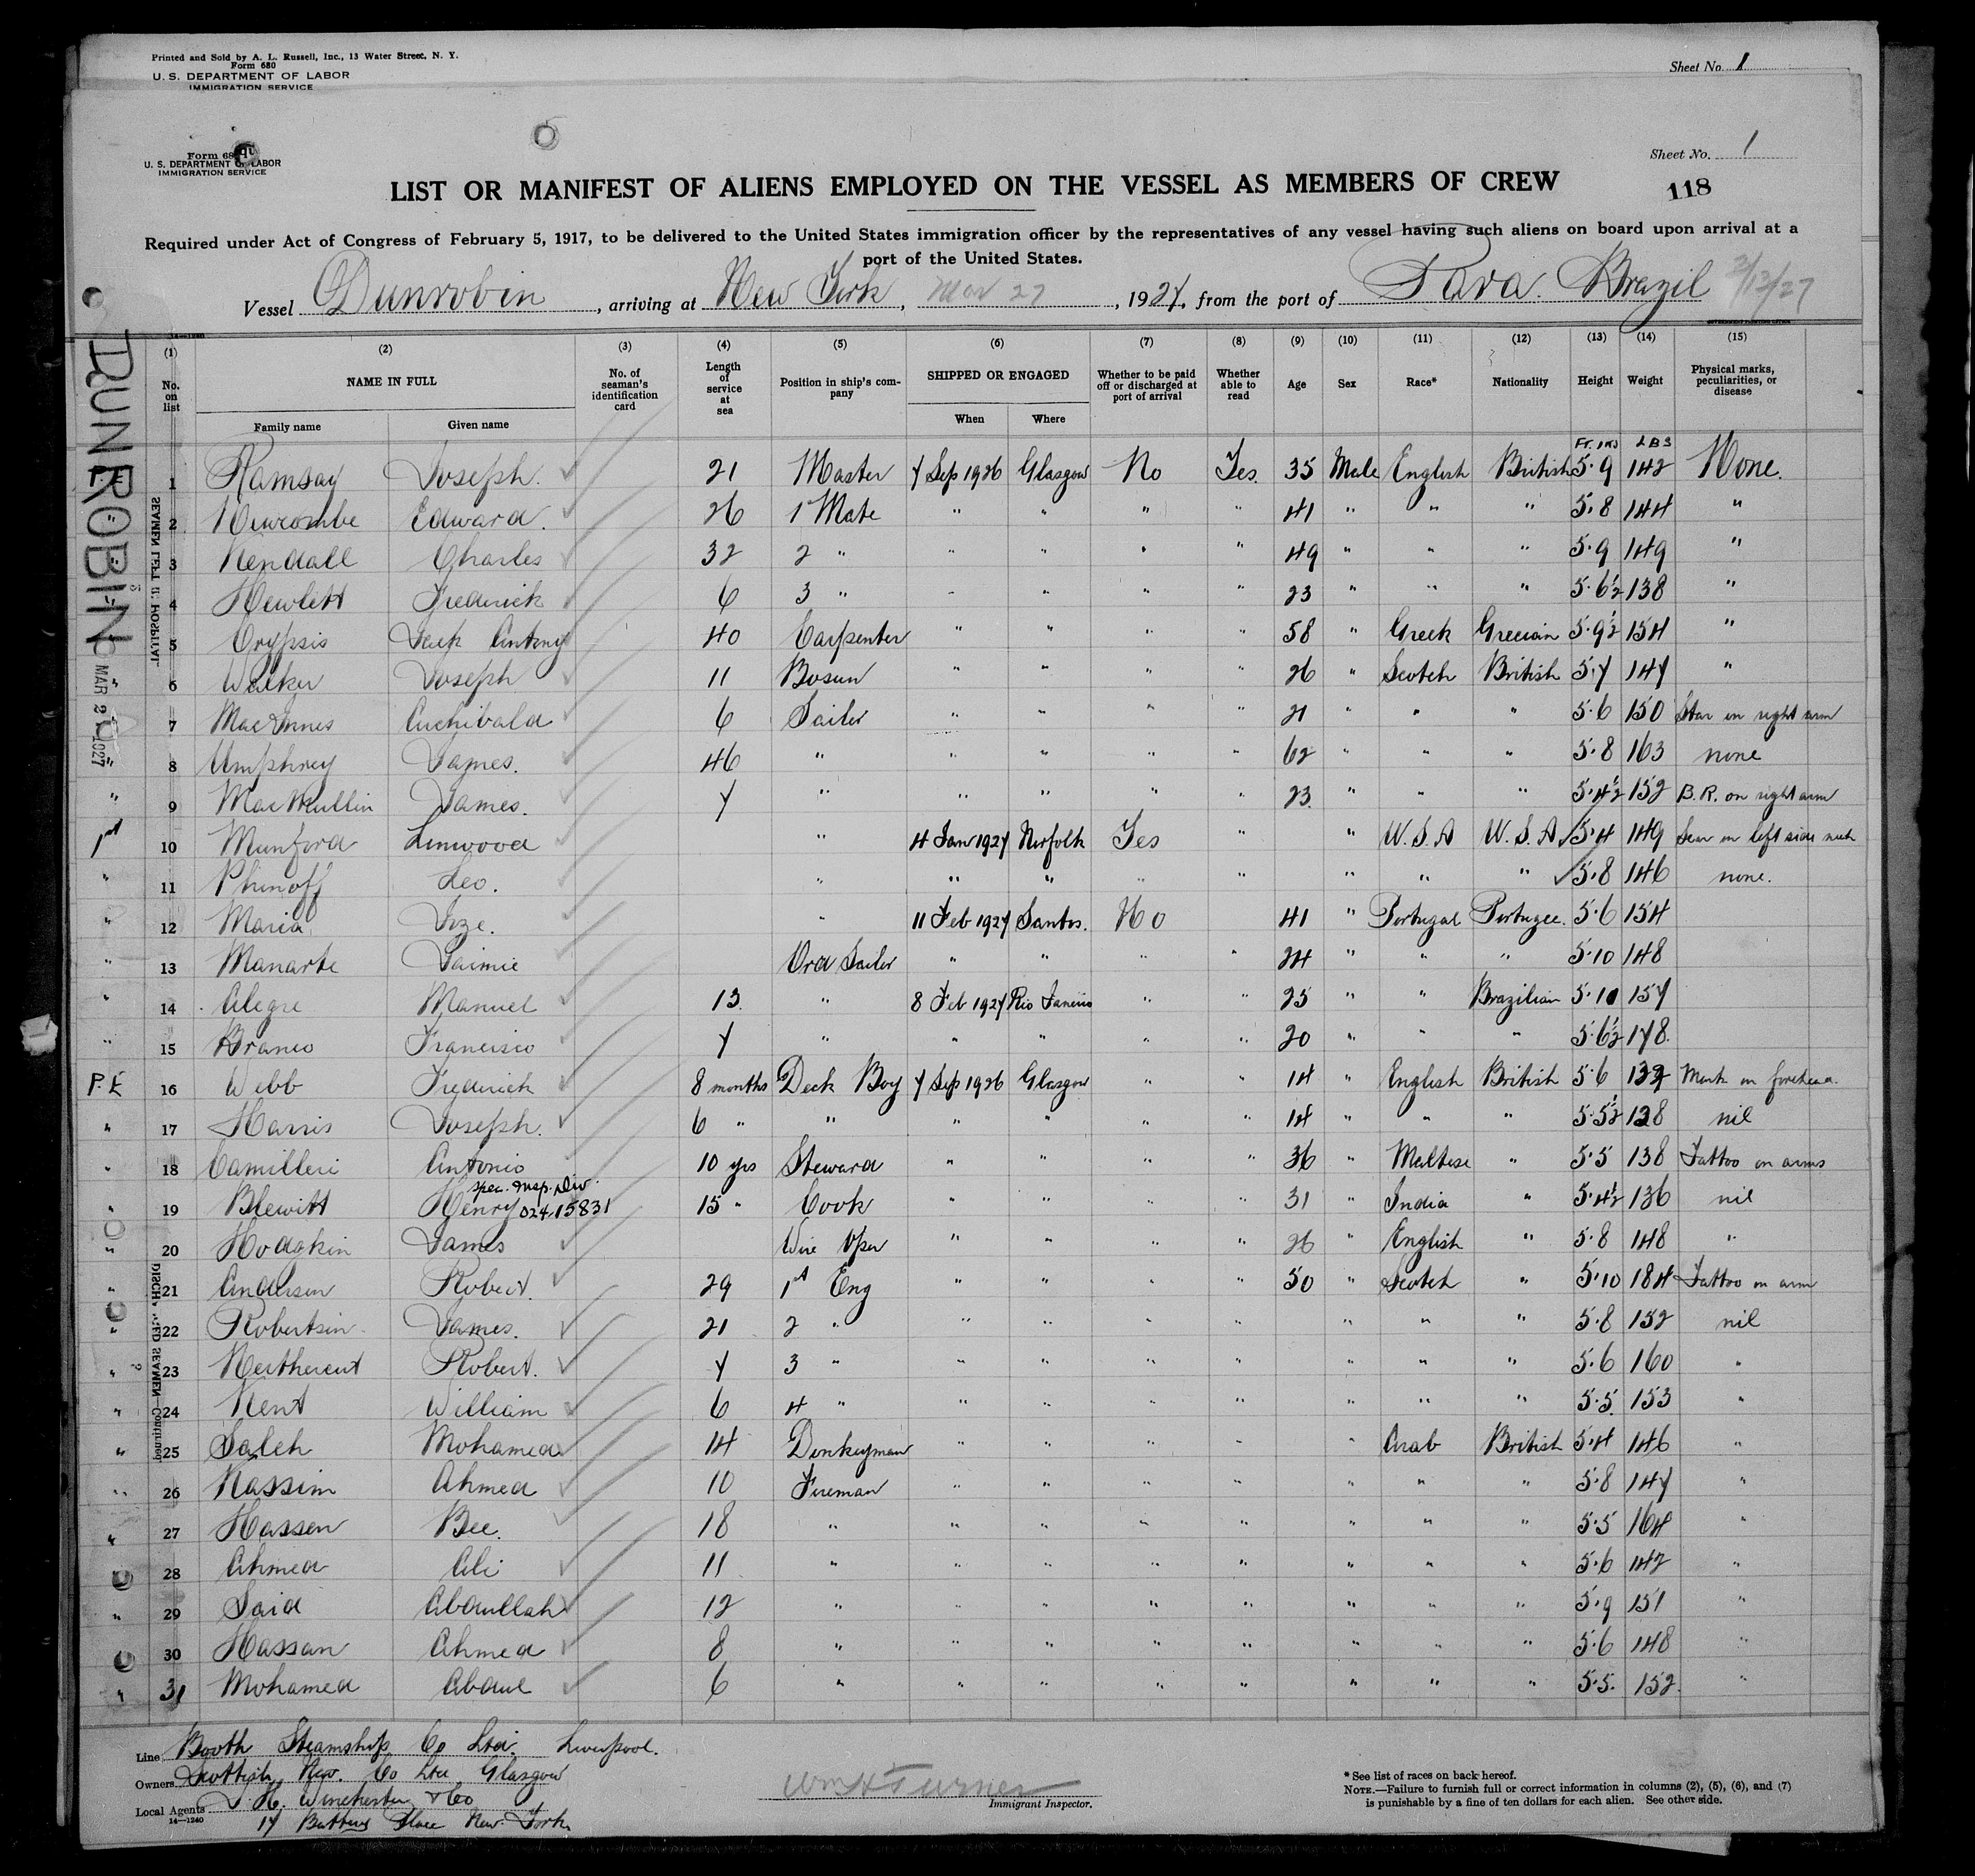 Printed and Sold by A. L. Russell, Inc., 13 Water Street, N. Y.
Form 680
U. S. DEPARTMENT OF LABOR
IMMIGRATION SERVICE
Sheet No. 1
Form 68
U. S. DEPARTMENT OF LABOR
IMMIGRATION SERVICE
Sheet No. 1
118
LIST OR MANIFEST OF ALIENS EMPLOYED ON THE VESSEL AS MEMBERS OF CREW
Required under Act of Congress of February 5, 1917, to be delivered to the United States immigration officer by the representatives of any vessel having such aliens on board upon arrival at a
port of the United States.
Vessel Dunrobin, arriving at New York, Mar 27, 1927, from the port of Para. Brazil 3/12/27
DUNROBIN
MAR 2 1927
SEAMEN LEFT IN HOSPITAL
DISCHARGED SEAMEN—Continued
(1) (2) (3) (4) (5) (6) (7) (8) (9) (10) (11) (12) (13) (14) (15)
No. on list NAME IN FULL No. of seaman's identification card Length of service at sea Position in ship's company SHIPPED OR ENGAGED Whether to be paid off or discharged at port of arrival Whether able to read Age Sex Race* Nationality Height Weight Physical marks, peculiarities, or disease
Family name Given name When Where
Ft. Ins LBS
1 Ramsay Joseph. 21 Master 7 Sep 1926 Glasgow No Yes. 35 Male English British 5.9 142 None.
2 Newcombe Edward. 26 1 Mate " " " " 41 " " " 5.8 144 "
3 Kendall Charles 32 2 " " " " " 49 " " " 5.9 149 "
4 Hewlett Frederick 6 3 " " " " " 23 " " " 5.6½ 138 "
5 Crypsis Antony 40 Carpenter " " " " 58 " Greek Grecian 5.9½ 154 "
6 Walker Joseph 11 Bosun " " " " 26 " Scotch British 5.7 147 "
7 MacInnes Archibald 6 Sailor " " " " 21 " " " 5.6 150 Star on right arm
8 Umphrey James. 46 " " " " " 62 " " " 5.8 163 none
9 MacMullin James. 7 " " " " " 23 " " " 5.4½ 152 B.R. on right arm
1st 10 Munford Linwood " 4 Jan 1927 Norfolk Yes " " U.S.A U.S.A 5.4 149 Scar on left side neck
11 Phinoff Leo. " " " " " " " " 5.8 146 none.
12 Maria Joze. " 11 Feb 1927 Santos. No 41 " Portugal Portugee. 5.6 154
13 Manarte Jaimie Ord Sailor " " " 24 " " " 5.10 148
14 Alegre Manuel 13 " 8 Feb 1927 Rio Janeiro " " 25 " " Brazilian 5.10 157
15 Branco Francisco 7 " " " " " 20 " " " 5.6½ 178.
P.E 16 Webb Frederick 8 months Deck Boy 7 Sep 1926 Glasgow " " 14 " English British 5.6 132 Mark on forehead.
17 Harris Joseph. 6 " " " " " 14 " " " 5.5½ 128 nil
18 Camilleri Antonio 10 yrs Steward " " " " 36 " Maltese " 5.5 138 Tattoo on arms
spec. Insp. Div.
19 Blewitt Henry 024.15831 15 " Cook " " " " 31 " India " 5.4½ 136 nil
20 Hodgkin James Wire Oper " " " " 26 " English " 5.8 148 "
21 Anderson Robert. 29 1st Eng " " " " 50 " Scotch " 5.10 184 Tattoo on arm
22 Robertson James. 21 2 " " " " " " " " 5.8 152 nil
23 Nethercut Robert. 7 3 " " " " " " " " 5.6 160 "
24 Kent William 6 4 " " " " " " " " 5.5 153 "
25 Saleh Mohamed 14 Donkeyman " " " " " Arab British 5.4 146 "
26 Nassim Ahmed 10 Fireman " " " " " " " 5.8 147 "
27 Hassen Bee. 18 " " " " " " " " 5.5 164 "
28 Ahmed Ali 11 " " " " " " " " 5.6 142 "
29 Said Abdullah 12 " " " " " " " " 5.9 151 "
30 Hassan Ahmed 8 " " " " " " " " 5.6 148 "
31 Mohamed Abdul 6 " " " " " " " " 5.5. 152. "
Line Booth Steamship Co Ltd. Liverpool.
Owners Scottish Nav. Co Ltd Glasgow
Local Agents J. H. Winchester & Co
14—1240
17 Battery Place New York
Wm H Turner
Immigrant Inspector.
* See list of races on back hereof.
NOTE.—Failure to furnish full or correct information in columns (2), (5), (6), and (7)
is punishable by a fine of ten dollars for each alien. See other side.